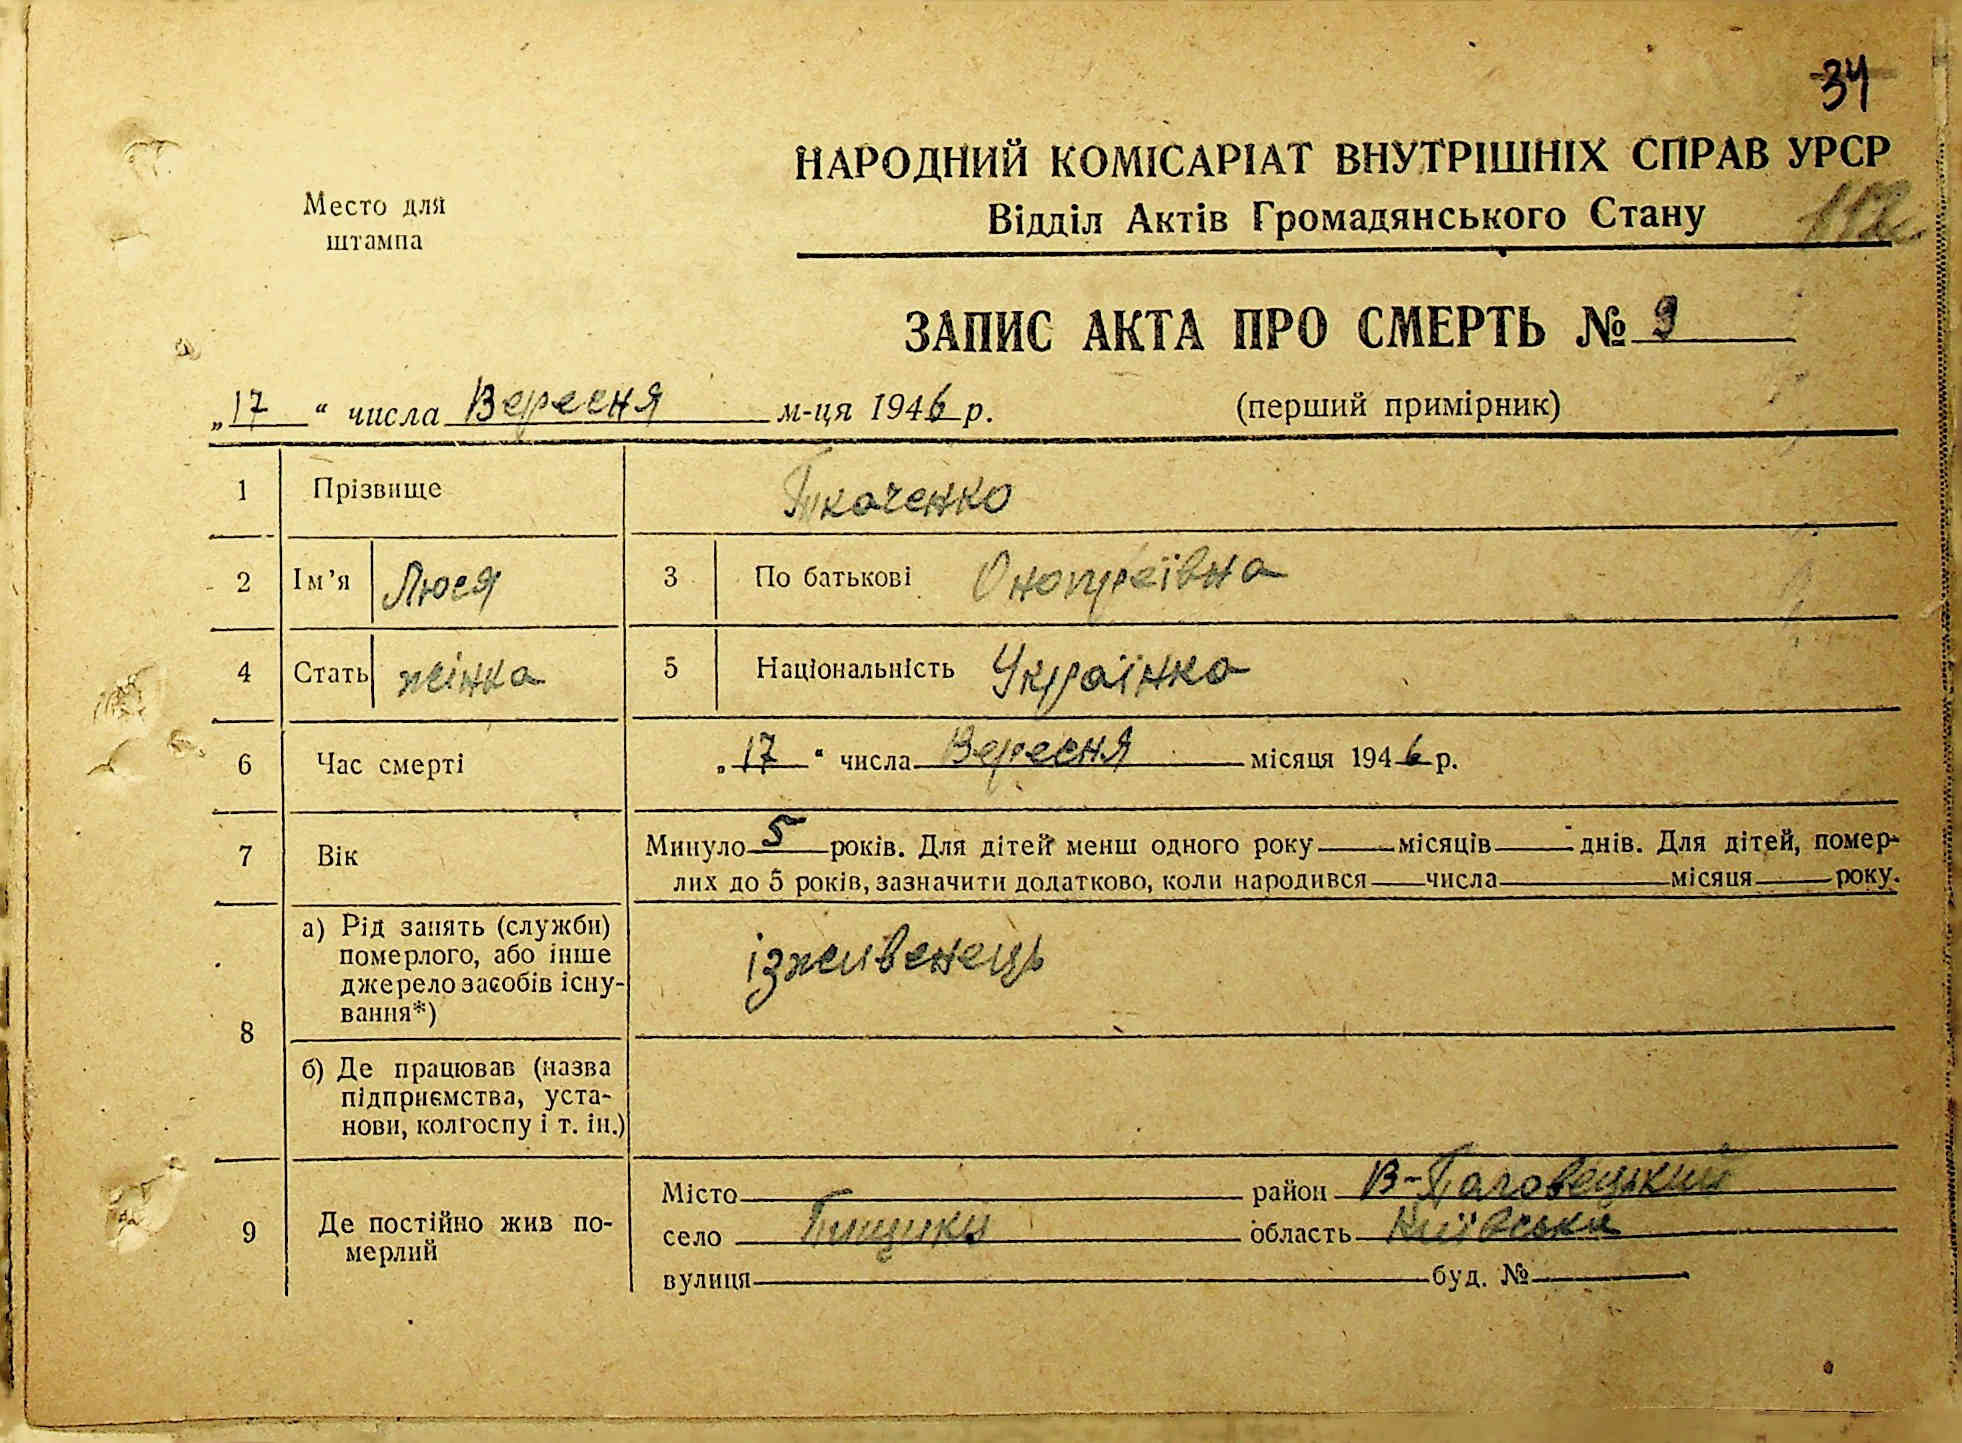 34
НАРОДНИЙ КОМІСАРІАТ ВНУТРІШНІХ СПРАВ УРСР
Место для
штампа
Відділ Актів Громадянського Стану
ЗАПИС АКТА ПРО СМЕРТЬ № 9
„17“ числа Вересня м-ця 1946 р.
(перший примірник)
1 Прізвище Ткаченко
2 Ім’я Люся 3 По батькові Онопріївна
4 Стать жінка 5 Національність Українка
6 Час смерті „17“ числа Вересня місяця 1946 р.
7 Вік Минуло 5 років. Для дітей менш одного року місяців днів. Для дітей, помер-
лих до 5 років, зазначити додатково, коли народився числа місяця року.
8
а) Рід занять (служби)
померлого, або інше
джерело засобів існу-
вання*)
іжживенець
б) Де працював (назва
підприємства, уста-
нови, колгоспу і т. ін.)
9 Де постійно жив по-
мерлий
Місто район В-Половецький
село область Київська
вулиця буд. №